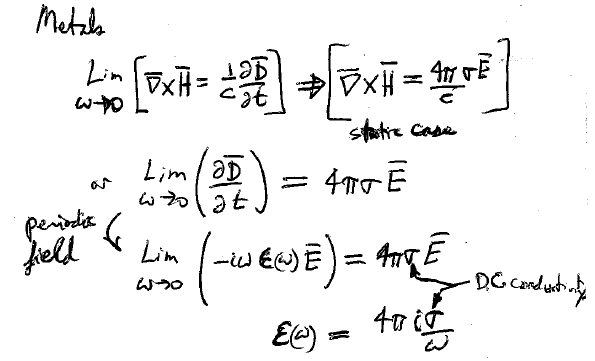 Metals
Lim ω→0 [∇̄×H̄ = 1/c ∂D̄/∂t] ⇒ [∇̄×H̄ = 4πσĒ/c]
static case
or Lim ω→0 (∂D̄/∂t) = 4πσĒ
periodic field Lim ω→0 (-iω ε(ω) Ē) = 4πσĒ
D.C. conductivity
ε(ω) = 4πiσ/ω